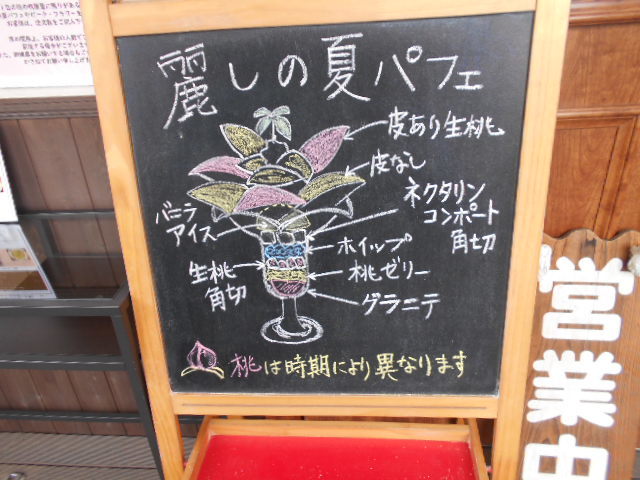 麗しの夏パフェ
皮あり生桃
皮なし
ネクタリン
コンポート
角切
バニラ
アイス
ホイップ
生桃
角切
桃ゼリー
グラニテ
桃は時期により異なります
営業中